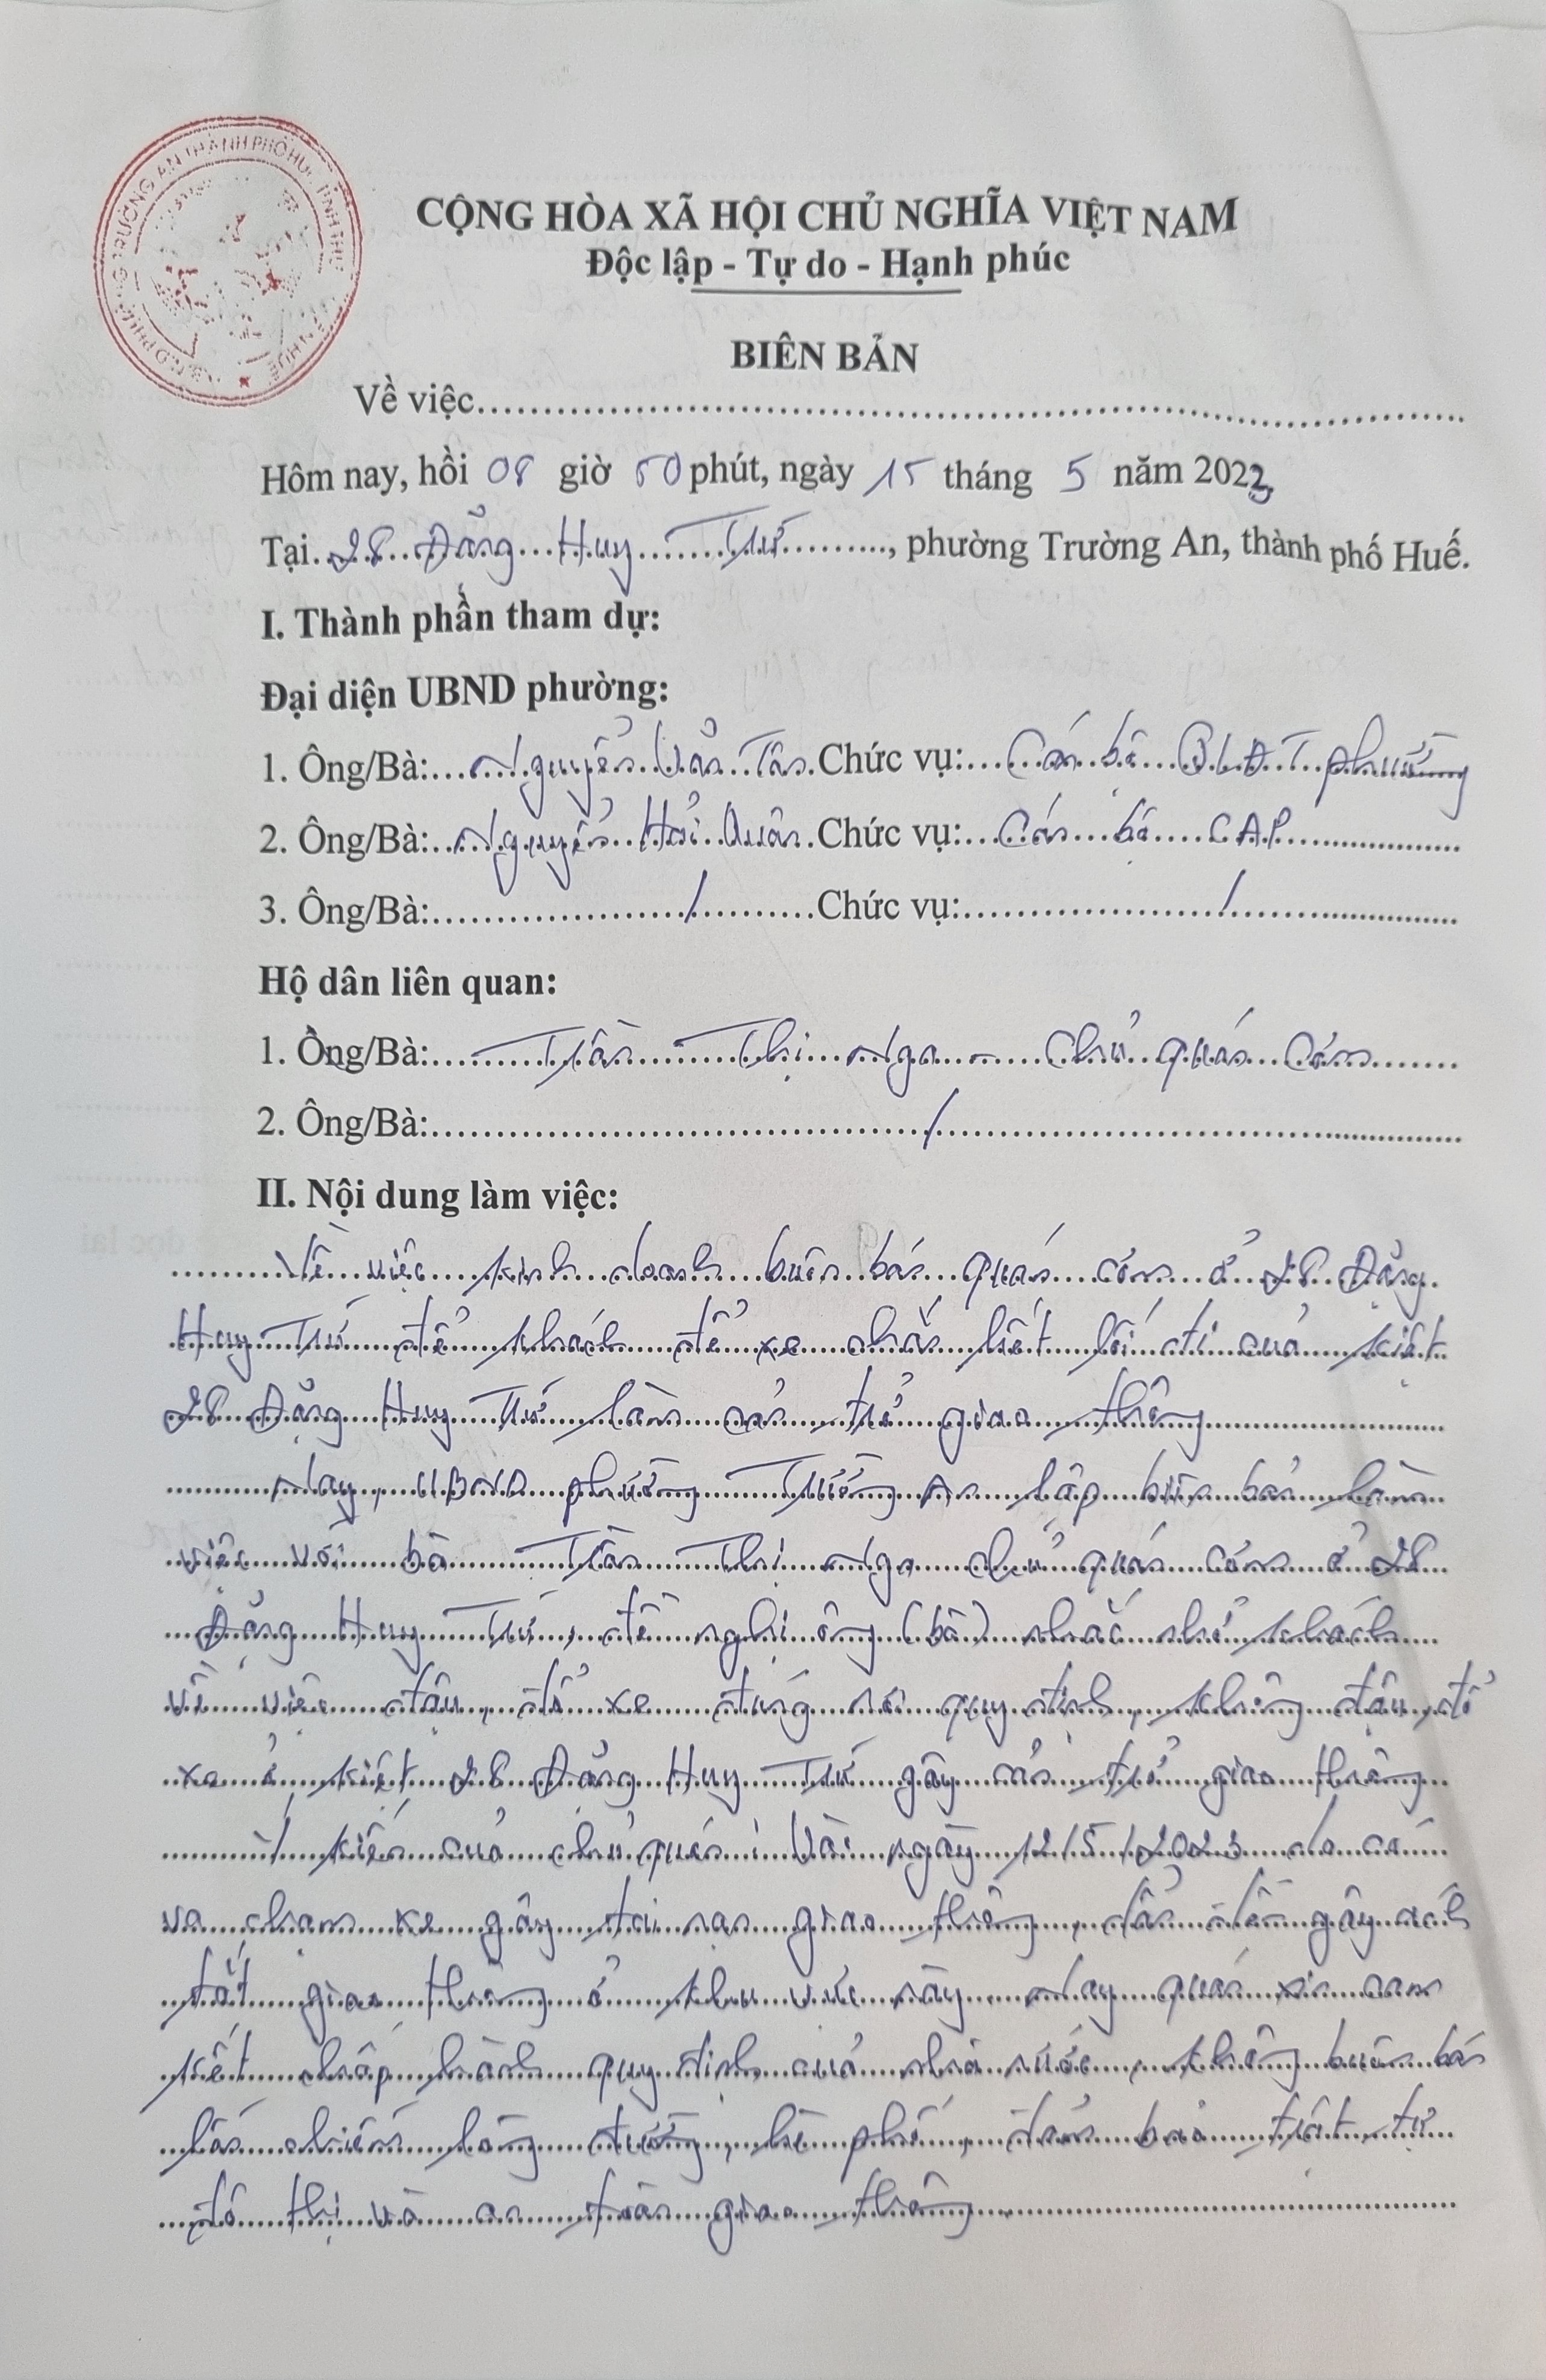 CỘNG HÒA XÃ HỘI CHỦ NGHĨA VIỆT NAM
Độc lập - Tự do - Hạnh phúc
BIÊN BẢN
Về việc
Hôm nay, hồi 08 giờ 50 phút, ngày 15 tháng 5 năm 2023
Tại 28 Đặng Huy Trứ, phường Trường An, thành phố Huế.
I. Thành phần tham dự:
Đại diện UBND phường:
1. Ông/Bà: Nguyễn Văn Tân Chức vụ: Cán bộ QLĐT phường
2. Ông/Bà: Nguyễn Hải Quân Chức vụ: Cán bộ CAP
3. Ông/Bà: / Chức vụ: /
Hộ dân liên quan:
1. Ông/Bà: Trần Thị Nga - chủ quán cơm
2. Ông/Bà: /
II. Nội dung làm việc:
Về việc kinh doanh buôn bán quán cơm ở 28 Đặng
Huy Trứ để khách để xe chắn hết lối đi của kiệt
28 Đặng Huy Trứ làm cản trở giao thông
Nay, UBND phường Trường An lập biên bản làm
việc với bà Trần Thị Nga chủ quán cơm ở 28
Đặng Huy Trứ, đề nghị ông (bà) nhắc nhở khách
về việc đậu, đỗ xe đúng nơi quy định, không đậu, đỗ
xe ở kiệt 28 Đặng Huy Trứ gây cản trở giao thông
Ý kiến của chủ quán: Vào ngày 12/5/2023 do có
va chạm xe gây tai nạn giao thông, dẫn đến gây ách
tắt giao thông ở khu vực này. Nay quán xin cam
kết chấp hành quy định của nhà nước, không buôn bán
lấn chiếm lòng đường, hè phố, đảm bảo trật tự
đô thị và an toàn giao thông